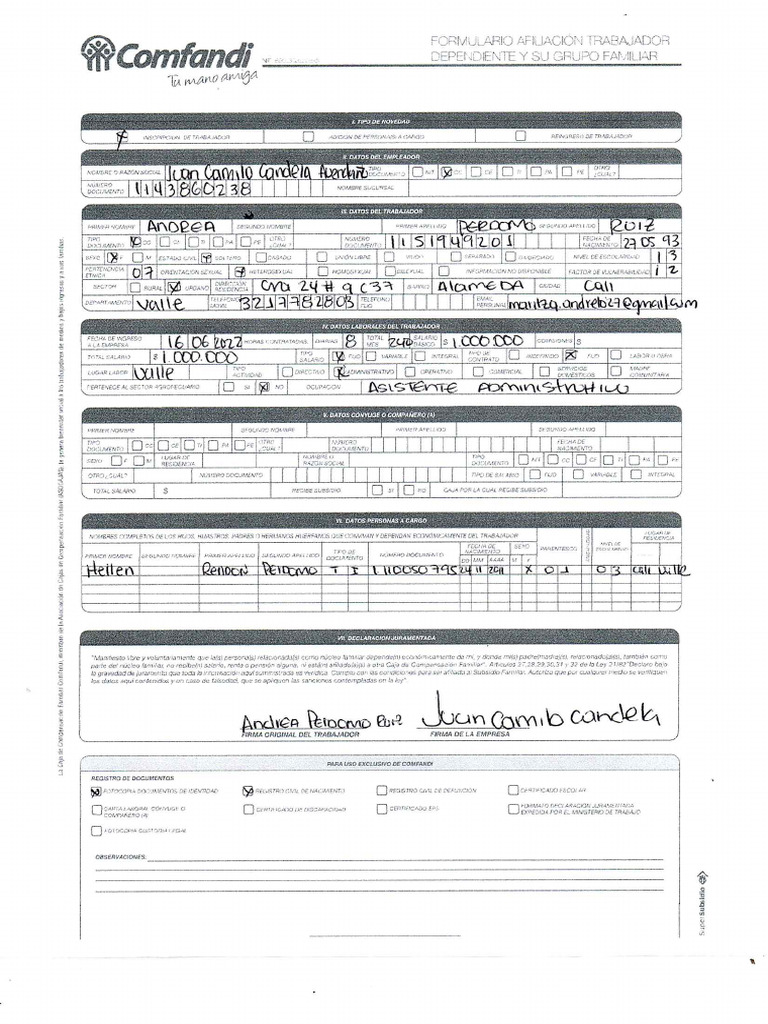 Comfandi
Tu mano amiga
FORMULARIO AFILIACIÓN TRABAJADOR
DEPENDIENTE Y SU GRUPO FAMILIAR
I. TIPO DE NOVEDAD
X INSCRIPCION DE TRABAJADOR ADICION DE PERSONAS A CARGO REINGRESO DE TRABAJADOR
II. DATOS DEL EMPLEADOR
NOMBRE O RAZON SOCIAL Juan Camilo Candela Avendaño TIPO DOCUMENTO NIT X CC CE TI PA PE OTRO ¿CUAL?
NUMERO DOCUMENTO 1143860238 NOMBRE SUCURSAL
III. DATOS DEL TRABAJADOR
PRIMER NOMBRE ANDREA SEGUNDO NOMBRE PRIMER APELLIDO PERDOMO SEGUNDO APELLIDO RUIZ
TIPO DOCUMENTO X CC CE TI PA PE OTRO ¿CUAL? NUMERO DOCUMENTO 1151949201 FECHA DE NACIMIENTO 27 05 93
SEXO X F M ESTADO CIVIL X SOLTERO CASADO UNION LIBRE VIUDO SEPARADO DIVORCIADO NIVEL DE ESCOLARIDAD 13
PERTENENCIA ETNICA 07 ORIENTACION SEXUAL X HETEROSEXUAL HOMOSEXUAL BISEXUAL INFORMACION NO DISPONIBLE FACTOR DE VULNERABILIDAD 12
SECTOR RURAL X URBANO DIRECCION RESIDENCIA Cra 24 # 9 C 37 BARRIO Alameda CIUDAD Cali
DEPARTAMENTO Valle TELEFONO MOVIL 3217782803 TELEFONO FIJO EMAIL PERSONAL
IV. DATOS LABORALES DEL TRABAJADOR
FECHA DE INGRESO A LA EMPRESA 16/06/2022 HORAS CONTRATADAS DIARIAS 8 TOTAL MES 240 SALARIO BASICO $ 1.000.000 COMISIONES $
TOTAL SALARIO $ 1.000.000 TIPO SALARIO X FIJO VARIABLE INTEGRAL TIPO DE CONTRATO INDEFINIDO X FIJO LABOR U OBRA
LUGAR LABOR Valle TIPO ACTIVIDAD DIRECTIVO X ADMINISTRATIVO OPERATIVO COMERCIAL SERVICIOS DOMÉSTICOS MADRE COMUNITARIA
PERTENECE AL SECTOR AGROPECUARIO SI X NO OCUPACION ASISTENTE ADMINISTRATIVO
V. DATOS CONYUGE O COMPAÑERO (A)
PRIMER NOMBRE SEGUNDO NOMBRE PRIMER APELLIDO SEGUNDO APELLIDO
TIPO DOCUMENTO CC CE TI PA PE OTRO ¿CUAL? NUMERO DOCUMENTO FECHA DE NACIMIENTO
SEXO F M LUGAR DE RESIDENCIA NOMBRE O RAZON SOCIAL TIPO DOCUMENTO NIT CC CE TI PA PE
OTRO ¿CUAL? NUMERO DOCUMENTO TIPO DE SALARIO FIJO VARIABLE INTEGRAL
TOTAL SALARIO $ RECIBE SUBSIDIO SI NO CAJA POR LA CUAL RECIBE SUBSIDIO
VI. DATOS PERSONAS A CARGO
NOMBRES COMPLETOS DE LOS HIJOS, HIJASTROS, PADRES O HERMANOS HUERFANOS QUE CONVIVAN Y DEPENDAN ECONOMICAMENTE DEL TRABAJADOR
PRIMER NOMBRE SEGUNDO NOMBRE PRIMER APELLIDO SEGUNDO APELLIDO TIPO DE DOCUMENTO NUMERO DOCUMENTO FECHA DE NACIMIENTO DD MM AAAA SEXO M F PARENTESCO NIVEL DE ESCOLARIDAD LUGAR DE RESIDENCIA
Hellen Rendon Perdomo T I 1110050795 24 11 2011 X 01 03 Cali Valle
VII. DECLARACIÓN JURAMENTADA
"Manifiesto libre y voluntariamente que la(s) persona(s) relacionada(s) como núcleo familiar dependen económicamente de mí, y donde mi(s) padre/madre(s), relacionado(a)(s), también como
parte del núcleo familiar, no recibe(n) salario, renta o pensión alguna, ni está(n) afiliada(s) a otra Caja de Compensación Familiar". Artículos 27,28,29,30,31 y 32 de la Ley 21/82 "Declaro bajo
la gravedad de juramento que toda la información aquí suministrada es verídica. Cumplo con las condiciones para ser afiliada al Subsidio Familiar. Autorizo que por cualquier medio se verifiquen
los datos aquí contenidos y en caso de falsedad, que se apliquen las sanciones contempladas en la ley".
Andrea Perdomo Ruiz Juan Camilo Candela
FIRMA ORIGINAL DEL TRABAJADOR FIRMA DE LA EMPRESA
PARA USO EXCLUSIVO DE COMFANDI
REGISTRO DE DOCUMENTOS
X FOTOCOPIA DOCUMENTOS DE IDENTIDAD X REGISTRO CIVIL DE NACIMIENTO REGISTRO CIVIL DE DEFUNCION CERTIFICADO ESCOLAR
CARTA LABORAL CONYUGE O COMPAÑERO (A) CERTIFICADO DE DISCAPACIDAD CERTIFICADO EPS FORMATO DECLARACION JURAMENTADA EXPEDIDA POR EL MINISTERIO DE TRABAJO
FOTOCOPIA CUSTODIA LEGAL
OBSERVACIONES:
SuperSubsidio